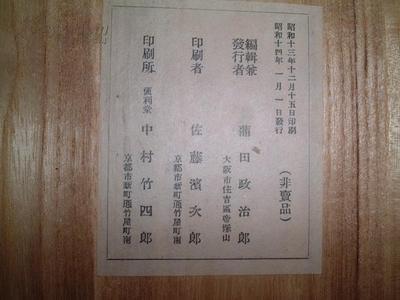 昭和十三年十二月十五日印刷
昭和十四年一月一日發行
(非賣品)
編輯兼發行者
蒲田政治郎
大阪市住吉區帝塚山
印刷者
佐藤濱次郎
京都市新町通竹屋町南
印刷所
便利堂
中村竹四郎
京都市新町通竹屋町南